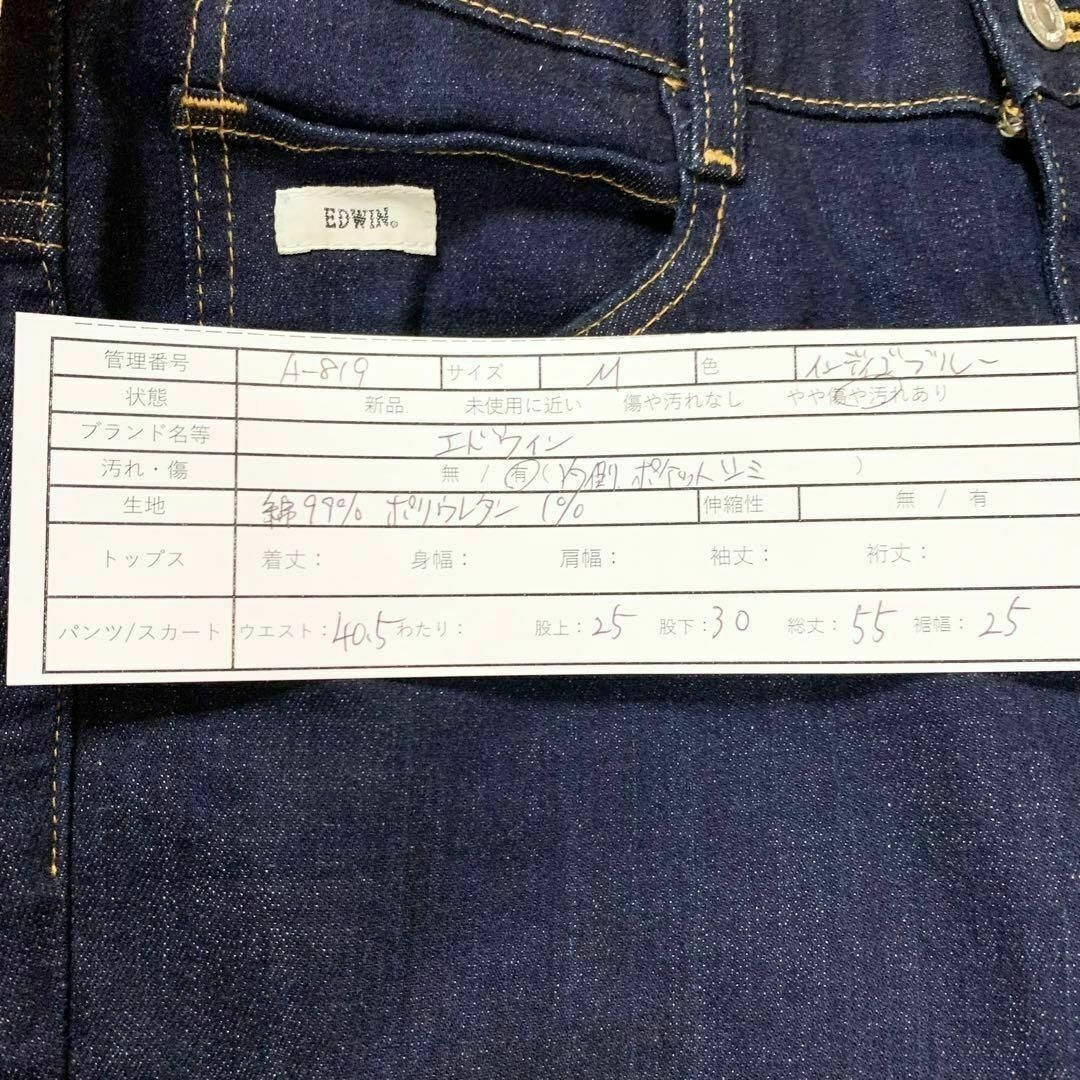 EDWIN®
管理番号 A-819 サイズ M 色 インディゴブルー
状態 新品 未使用に近い 傷や汚れなし やや傷や汚れあり
ブランド名等 エドウィン
汚れ・傷 無 / 有 ( 内側ポケットシミ )
生地 綿99% ポリウレタン 1% 伸縮性 無 / 有
トップス 着丈: 身幅: 肩幅: 袖丈: 裄丈:
パンツ/スカート ウエスト:40.5 わたり: 股上:25 股下:30 総丈:55 裾幅:25